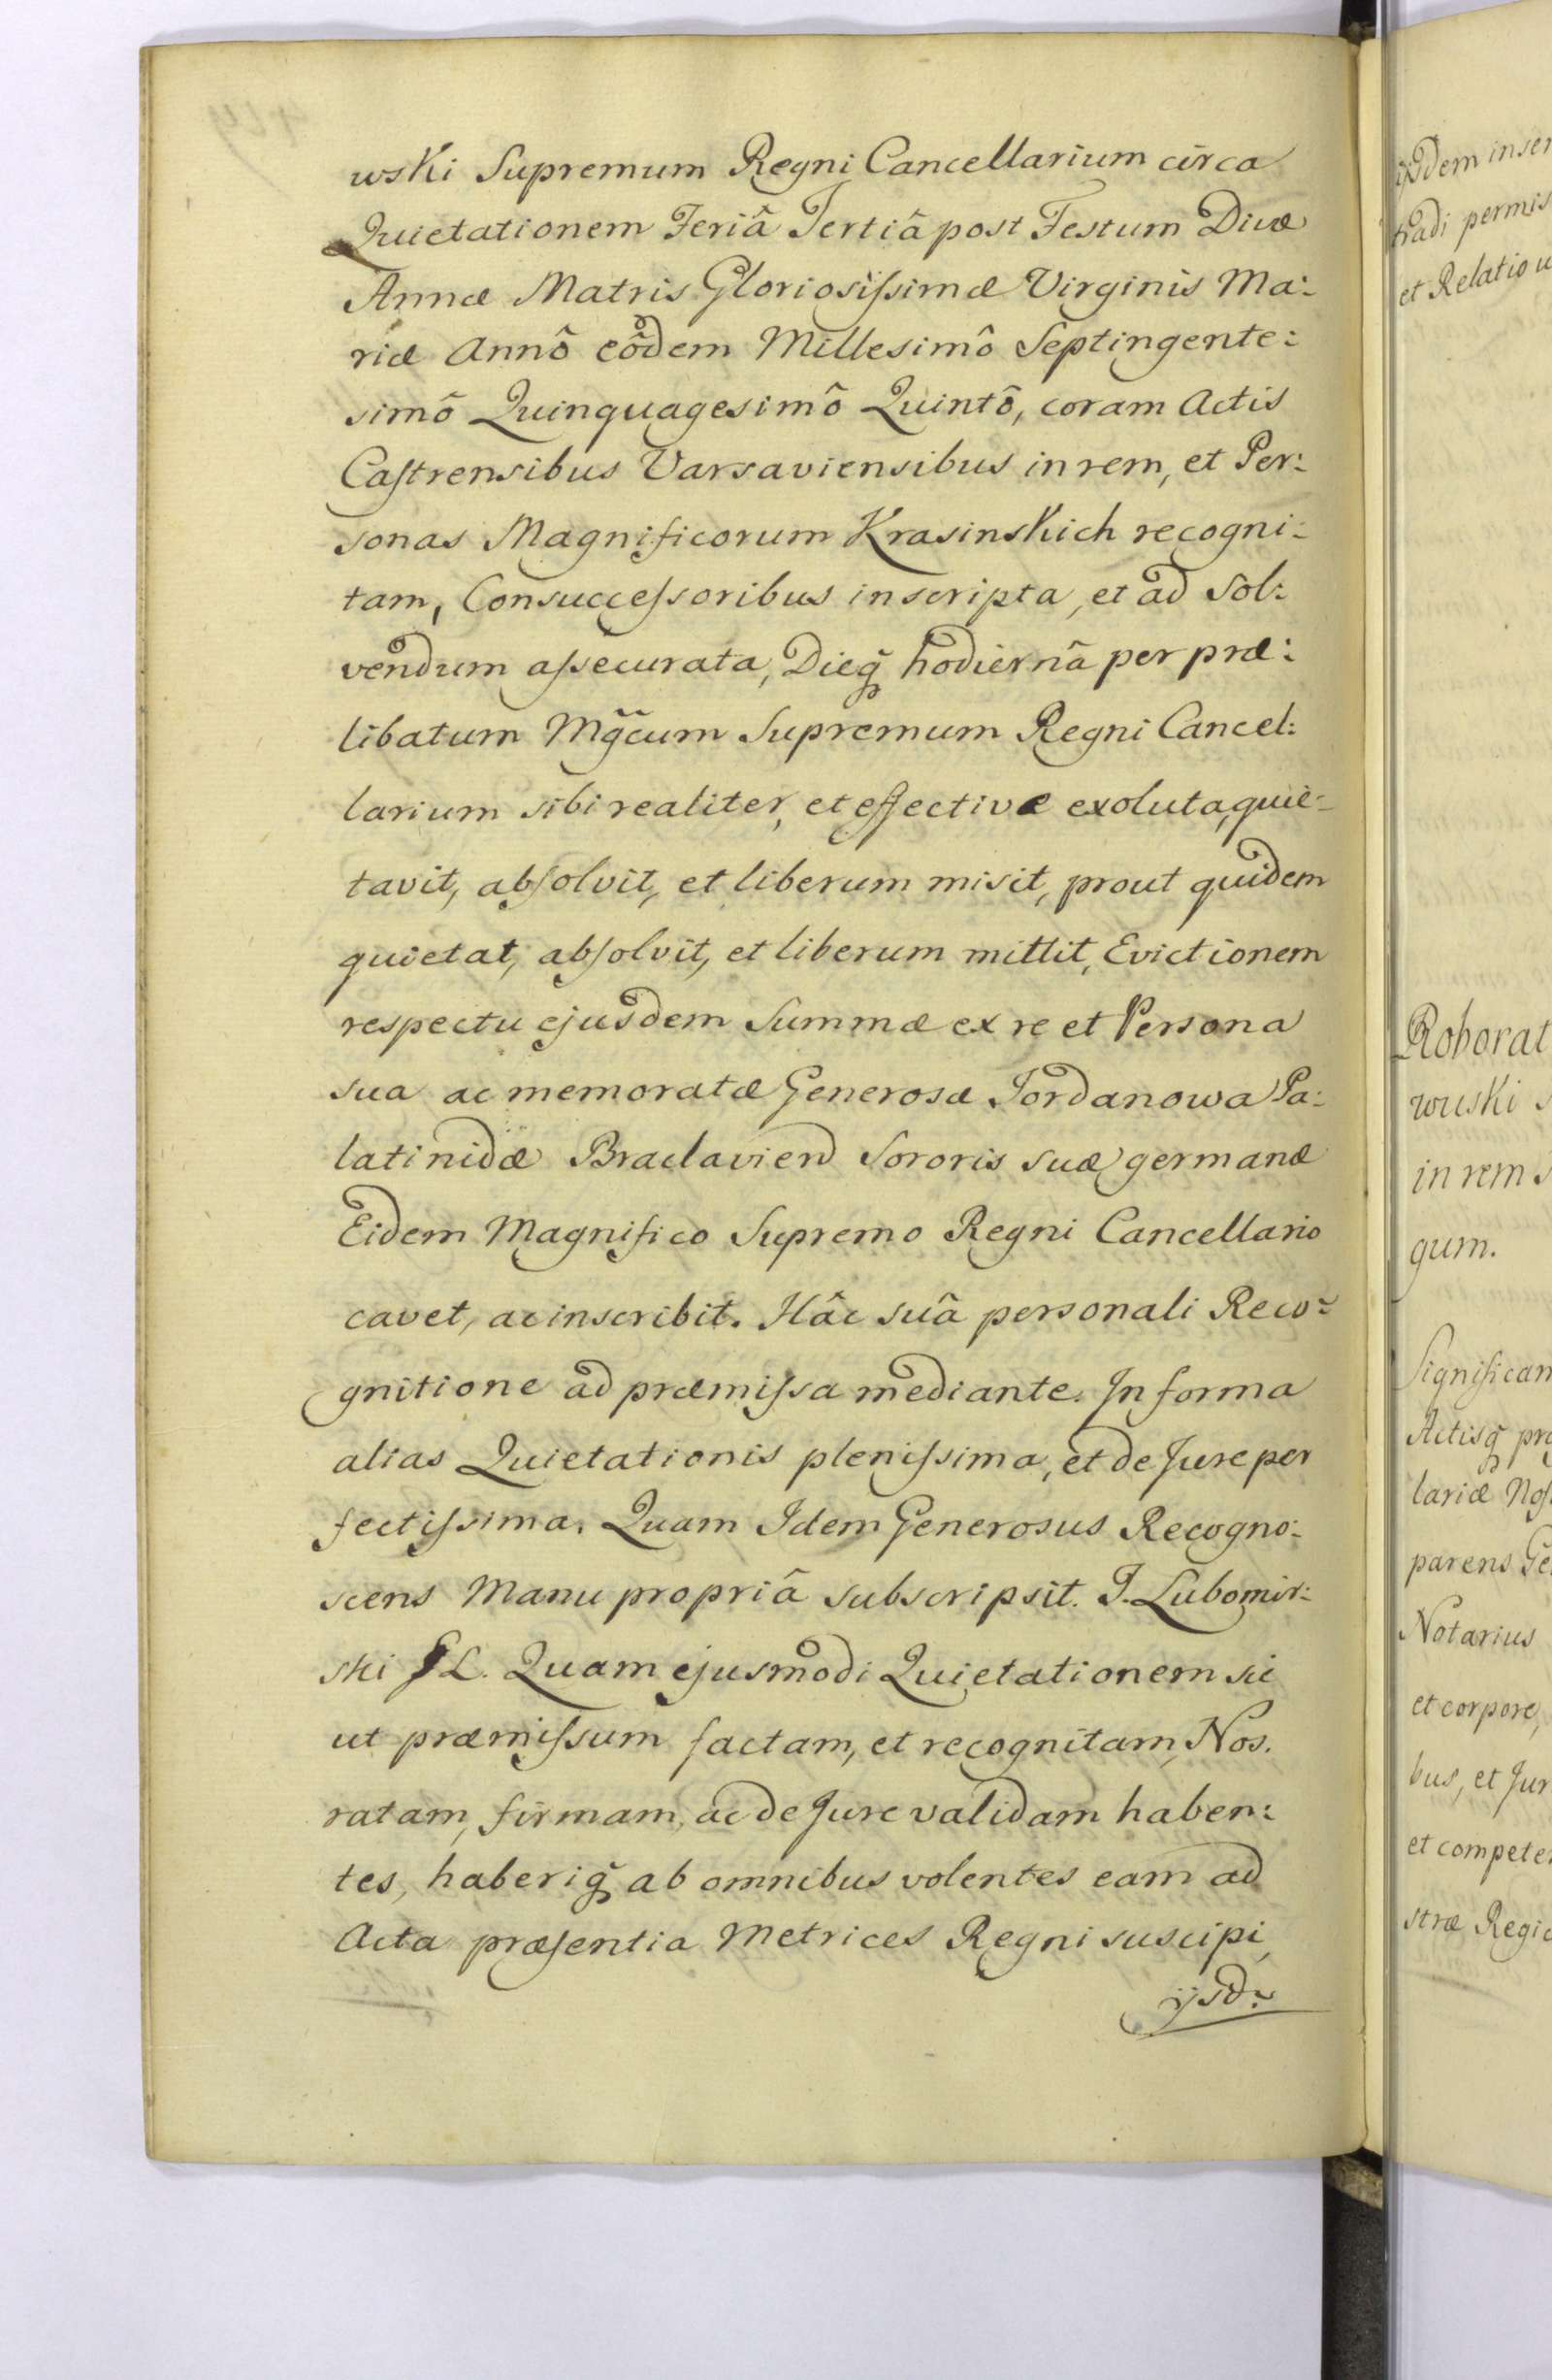 wski Supremum Regni Cancellarium circa
Quietationem Feriâ Tertiâ post Festum Divæ
Annæ Matris Gloriosiſsimæ Virginis Ma:
riæ Annô eôdem Millesimô Septingente:
simô Quinquagesimô Quintô, coram Actis
Caſtrensibus Varsaviensibus in rem, et Per:
sonas Magnificorum Krasinskich recogni:
tam, Consucceſsoribus inscripta, et ad Sol:
vendum aſsecurata, Dieq̃ hodiernâ per præ:
libatum Mg̃c̃um Supremum Regni Cancel:
larium sibi realiter, et effectivæ exoluta, quie:
tavit, abſolvit, et liberum misit, prout quidem
quietat, abſolvit, et liberum mittit, Evictionem
respectu ejusdem Summæ ex re et Persona
sua ac memoratæ Generosæ Jordanowa Pa:
latinidæ Braclavien Sororis suæ germanæ
Eidem Magnifico Supremo Regni Cancellario
cavet, ac inscribit. Hâc suâ personali Reco:
gnitione ad præmiſsa mediante. In forma
alias Quietationis pleniſsima, et de Jure per
fectiſsima. Quam Idem Generosus Recogno:
scens Manu propriâ subscripsit. J. Lubomir:
ski GL. Quam ejusmodi Quietationem sic
ut præmiſsum factam, et recognitam, Nos.
ratam, firmam, ac de Jure validam haben:
tes, haberiq̃ ab omnibus volentes eam ad
Acta præſentia Metrices Regni suscipi,
ijsd:
tradi permis
et Relatio
Roborat
wuski
in rem
gum.
Significam
Actisq̃
lariæ
parens
Notarius
et corpore,
bus, et Jur
et compete
stræ Regi